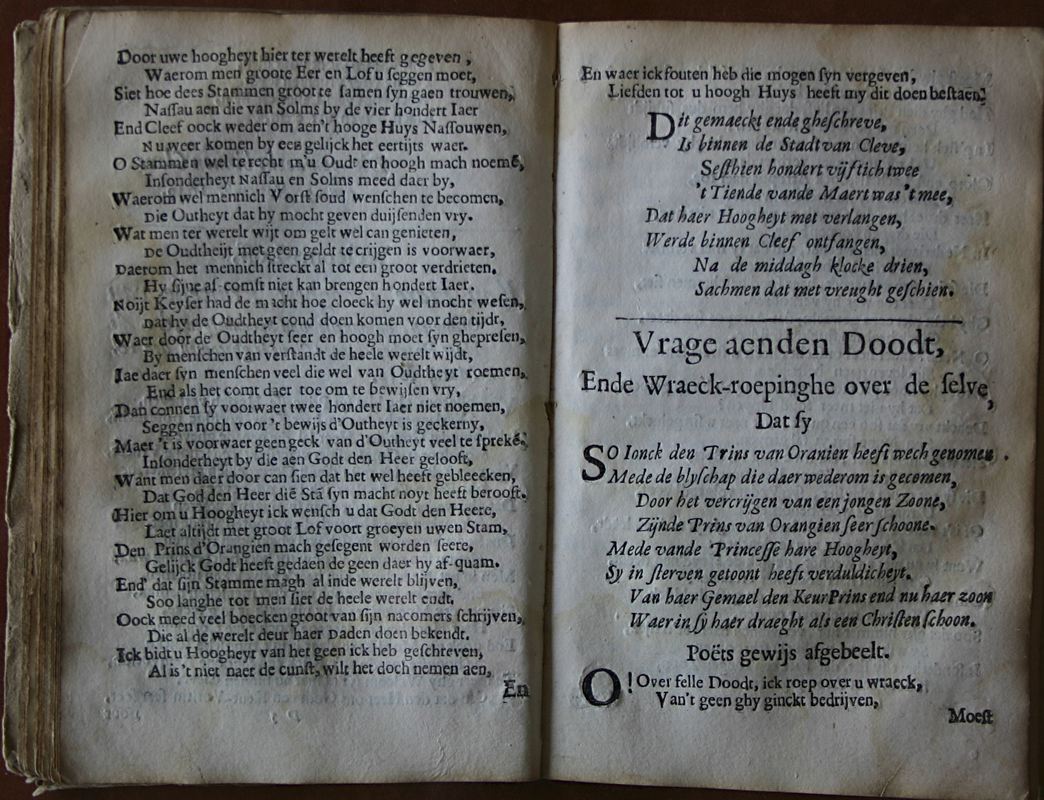 Door uwe hoogheyt hier ter werelt heeft gegeven,
Waerom men groote Eer en Lof u seggen moet,
Siet hoe dees Stammen groot te samen syn gaen trouwen,
Nassau aen die van Solms by de vier hondert Iaer
End Cleef oock weder om aen't hooge Huys Nassouwen,
Nu weer komen by een gelijck het eertijts waer.
O Stammen wel te recht m'u Oudt en hoogh mach noemē,
Insonderheyt Nassau en Solms meed daer by,
Waerom wel mennich Vorst soud wenschen te becomen,
Die Outheyt dat hy mocht geven duijsenden vry.
Wat men ter werelt wijt om gelt wel can genieten,
De Oudtheijt met geen geldt te crijgen is voorwaer,
Daerom het mennich streckt al tot een groot verdrieten.
Hy sijne af-comst niet kan brengen hondert Iaer.
Noijt Keyser had de macht hoe cloeck hy wel mocht wesen,
Dat hy de Oudtheyt cond doen komen voor den tijdt,
Waer door de Oudtheyt seer en hoogh moet syn ghepresen,
By menschen van verstandt de heele werelt wijdt,
Iae daer syn menschen veel die wel van Oudtheyt roemen,
End als het comt daer toe om te bewijsen vry,
Dan connen sy voorwaer twee hondert Iaer niet noemen,
Seggen noch voor 't bewijs d'Outheyt is geckerny,
Maer 't is voorwaer geen geck van d'Outheyt veel te sprekē,
Insonderheyt by die aen Godt den Heer gelooft,
Want men daer door can sien dat het wel heeft gebleecken,
Dat God den Heer diē Stā syn macht noyt heeft berooft.
Hier om u Hoogheyt ick wensch u dat Godt den Heere,
Laet altijdt met groot Lof voort groeyen uwen Stam,
Den Prins d'Orangien mach gesegent worden seere,
Gelijck Godt heeft gedaen de geen daer hy af-quam.
End' dat sijn Stamme magh al inde werelt blijven,
Soo langhe tot men siet de heele werelt endt,
Oock meed veel boecken groot van sijn nacomers schrijven,
Die al de werelt deur haer Daden doen bekendt.
Ick bidt u Hoogheyt van het geen ick heb geschreven,
Al is 't niet naer de cunst, wilt het doch nemen aen,
En
En waer ick fouten heb die mogen syn vergeven,
Liefden tot u hoogh Huys heeft my dit doen bestaen.
Dit gemaeckt ende gheschreve,
Is binnen de Stadt van Cleve,
Sesthien hondert vijftich twee
't Tiende vande Maert was 't mee,
Dat haer Hoogheyt met verlangen,
Werde binnen Cleef ontfangen,
Na de middagh klocke drien,
Sachmen dat met vreught geschien.
Vrage aenden Doodt,
Ende Wraeck-roepinghe over de selve,
Dat sy
SO Ionck den Prins van Oranien heeft wech genomen.
Mede de blyschap die daer wederom is gecomen,
Door het vercrijgen van een jongen Zoone,
Zijnde Prins van Orangien seer schoone.
Mede vande Princesse hare Hoogheyt,
Sy in sterven getoont heeft verduldicheyt.
Van haer Gemael den KeurPrins end nu haer zoon
Waer in sy haer draeght als een Christen schoon.
Poëts gewijs afgebeelt.
O! Over felle Doodt, ick roep over u wraeck,
Van't geen ghy ginckt bedrijven,
Moest